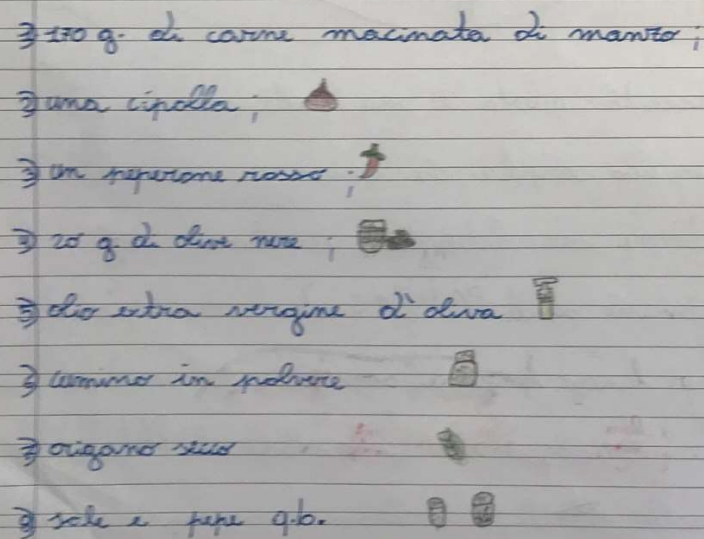 170 g. di carne macinata di manzo;
una cipolla;
un peperone rosso;
20 g. di olive nere;
olio extra vergine d'oliva
cumino in polvere
origano secco
sale e pepe q.b.